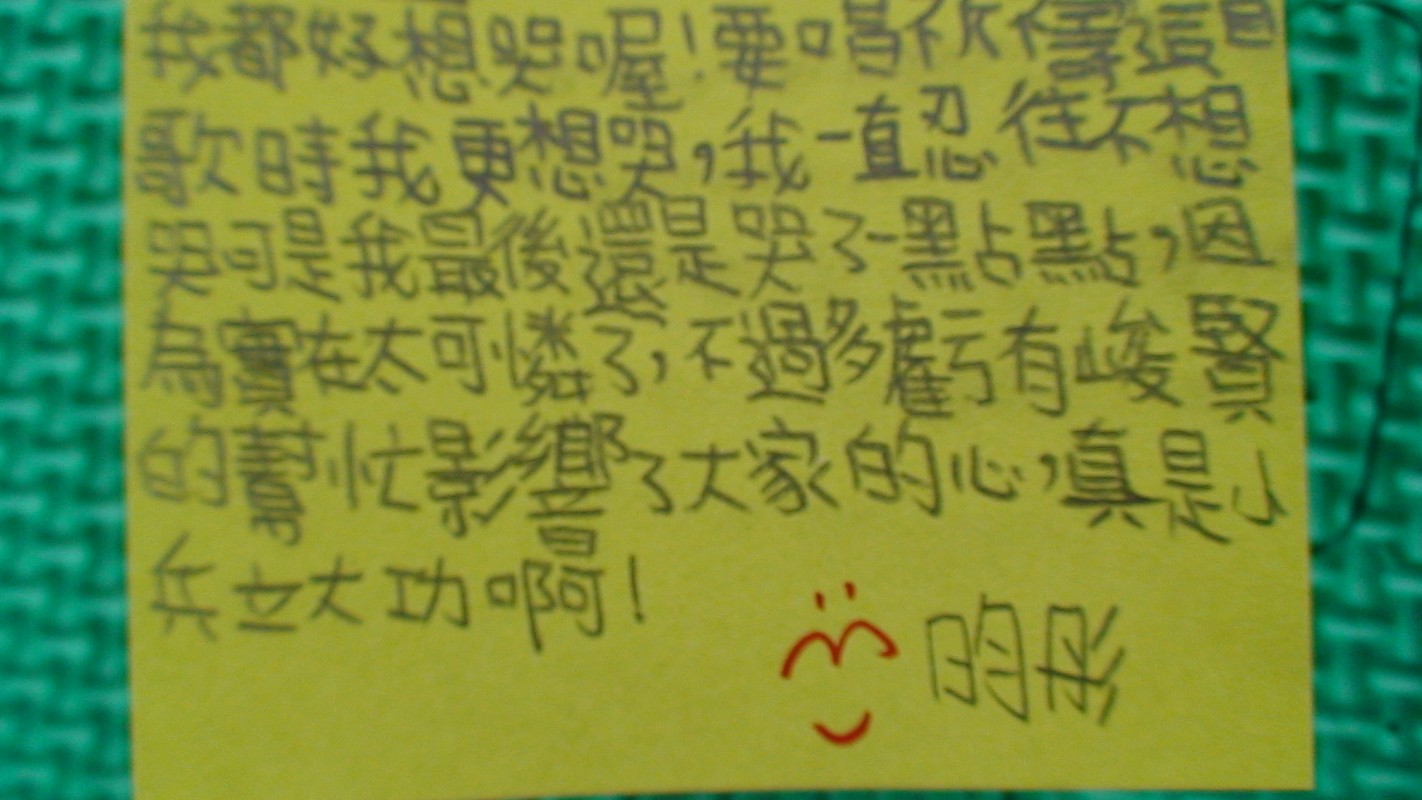 我都好想哭喔!要唱祈禱這首
歌時我更想哭,我一直忍住不想
哭可是我最後還是哭了一點點,因
為實在太可憐了,不過多虧有峻賢
的幫忙影響了大家的心,真是小
兵立大功啊!
昀彤